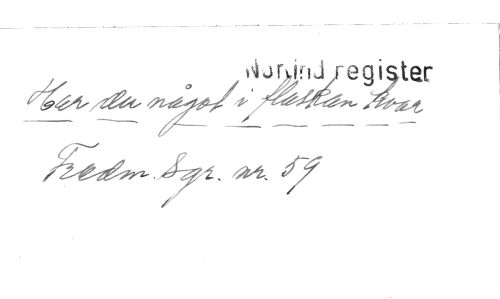 Norlind register
Har du något i flaskan kvar
Fredm. Sgr. nr. 59